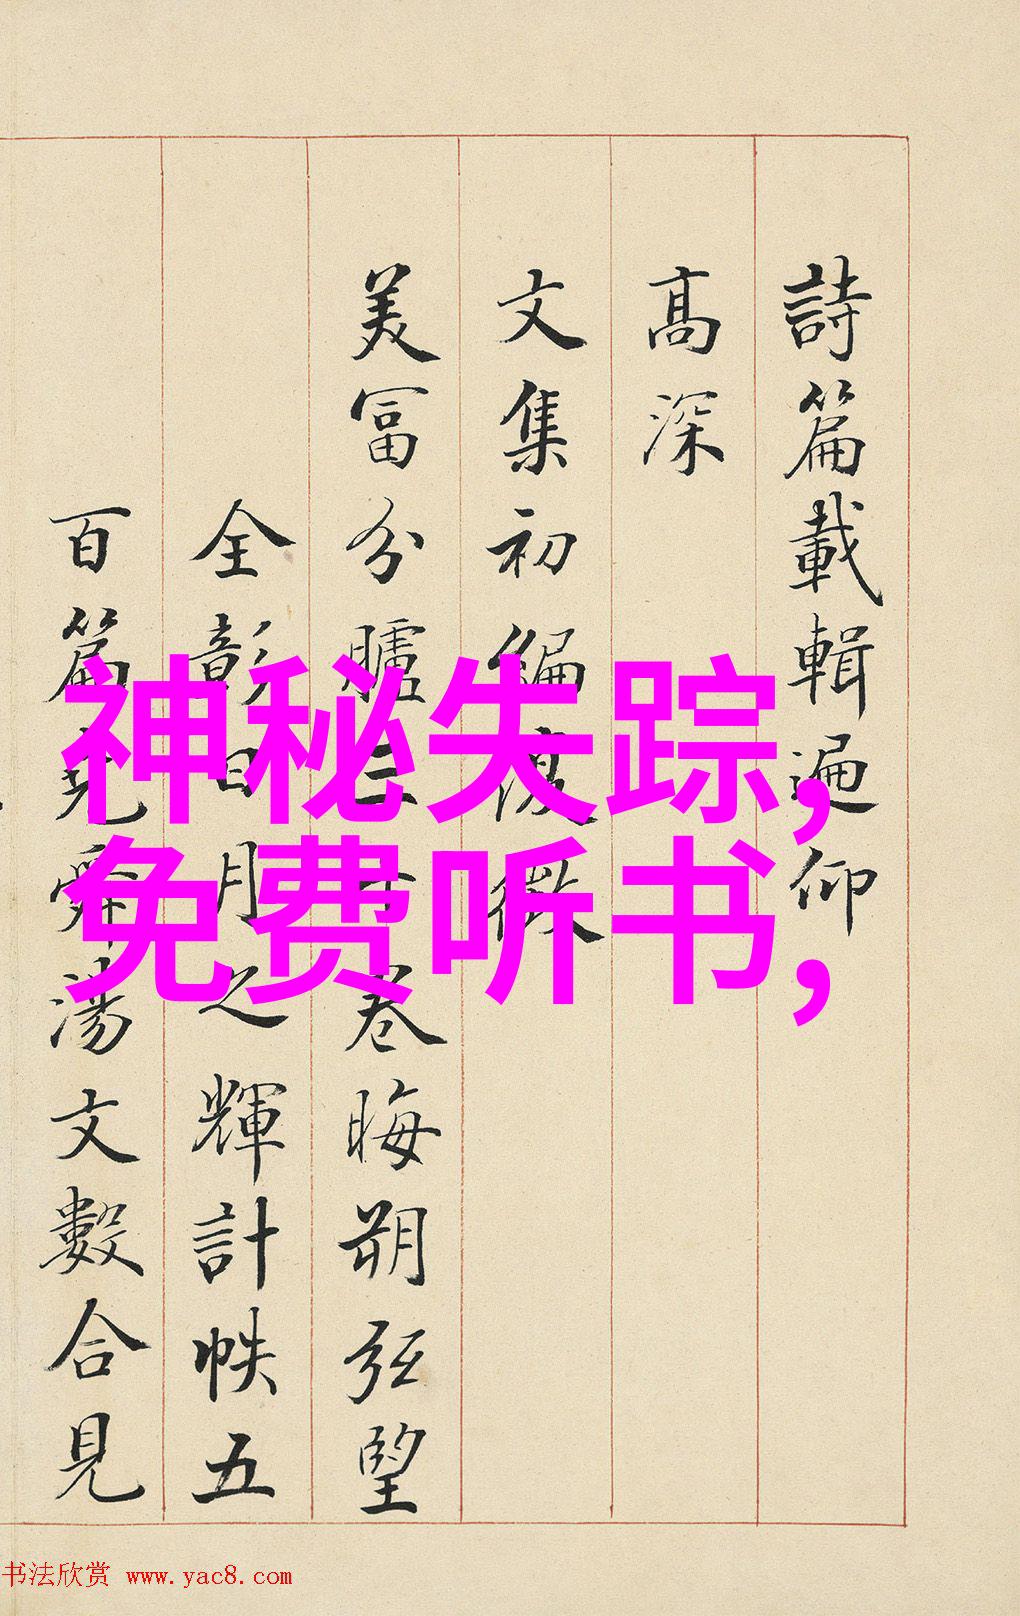 詩篇載輯遍仰
髙深
文集初編
美富分臚卷晦朔弦望
全彰日月之輝計帙五
百篇堯舜湯文數合見
神秘失踪,
免费听书,
书法欣赏 www.yac8.com